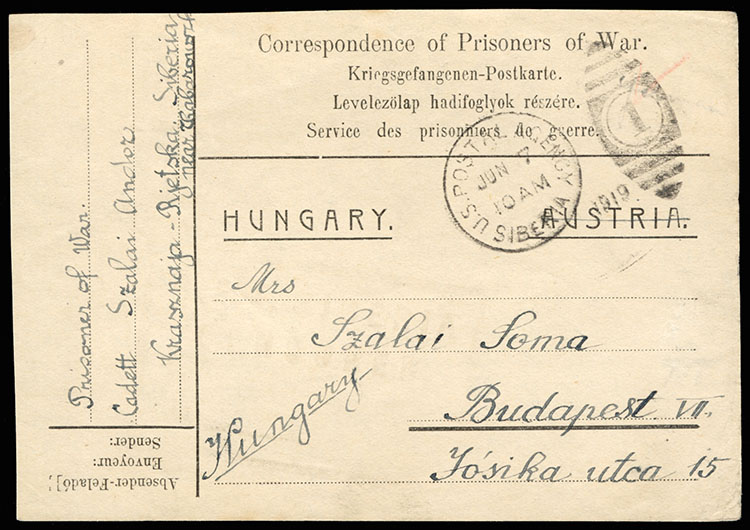 Correspondence of Prisoners of War.
Kriegsgefangenen-Postkarte.
Levelezölap hadifoglyok részére.
Service des prisonniers de guerre.
U.S. POSTAL AGENCY
JUN 7
10 AM
SIBERIA
1919
1
HUNGARY. AUSTRIA.
Mrs
Szalai Soma
Budapest. VII.
Hungary
Jósika utca 15
Prisoner of War.
Cadett Szalai Andor
Krasznaja-Rjetska-Siberia
near Habarowsk
Absender-Feladó
Envoyeur:
Sender: